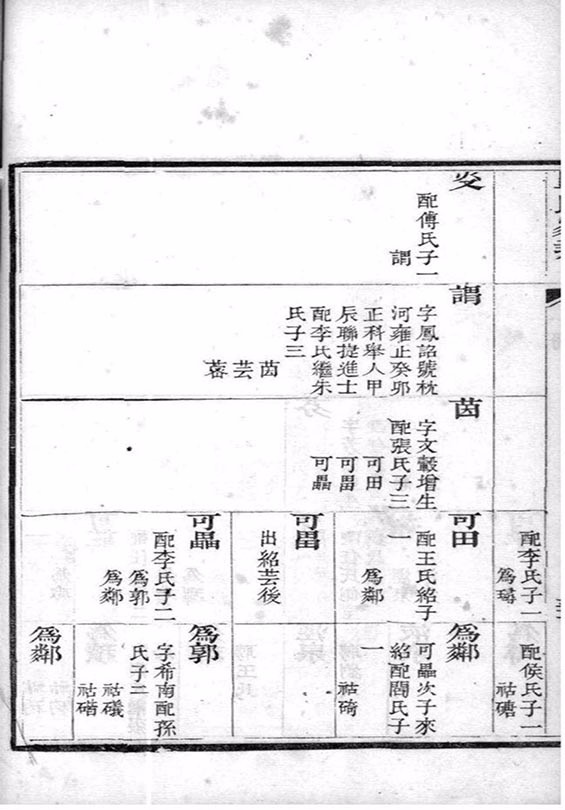 配李氏子一
爲
配侯氏子一
祜
配傅氏子一
謂
謂
字鳳詔號枕
河雍正癸卯
正科舉人甲
辰聯捷進士
配李氏繼朱
氏子三
茵 芸
茵
字文 增生
配張氏子三
可田
可畕
可畾
可田
配王氏紹子
一
爲鄰
可畕
出紹芸後
可畾
配李氏子二
爲郭
爲鄰
爲鄰
可畾次子來
紹配閻氏子
一
祜碕
爲郭
字希南配孫
氏子二
祜礒
祜碏
爲鄰